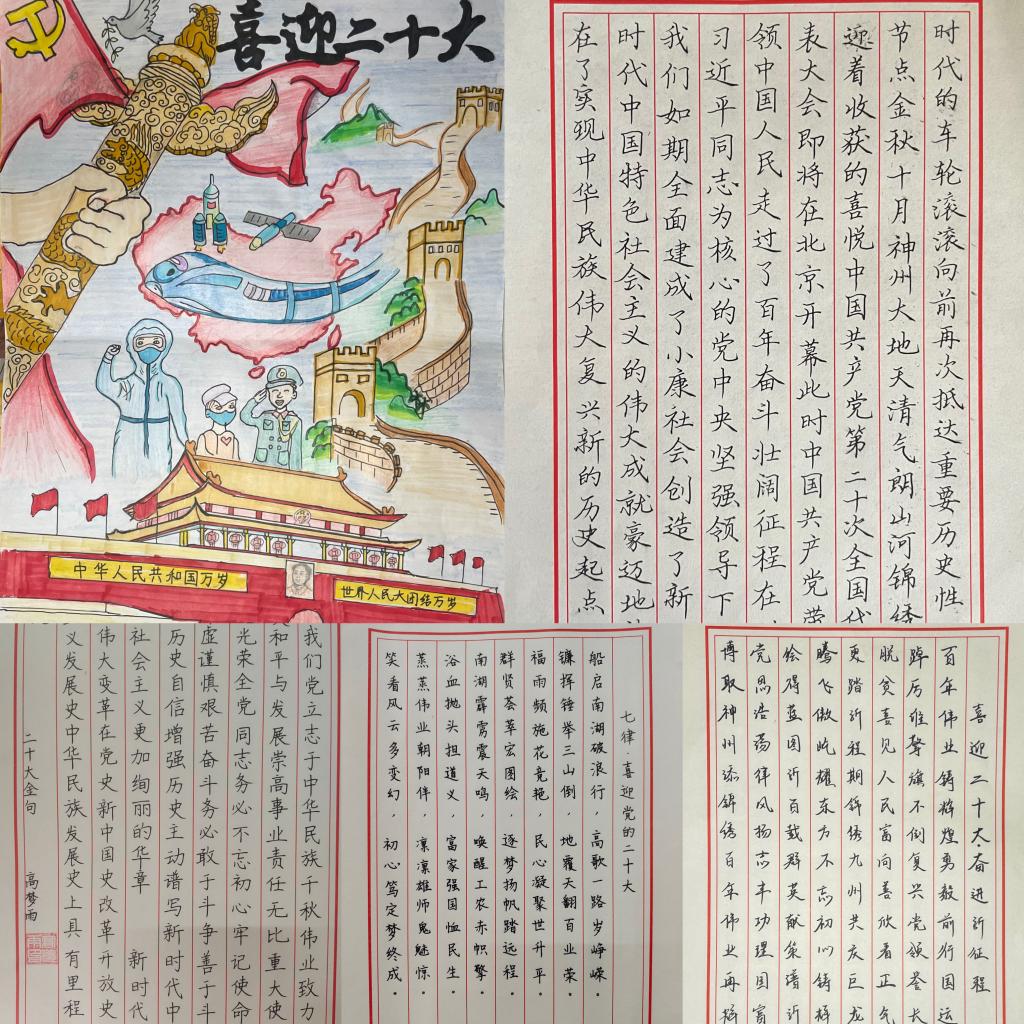 喜迎二十大
中华人民共和国万岁
世界人民大团结万岁
时代的车轮滚滚向前再次抵达重要历史性
节点金秋十月神州大地天清气朗山河锦绣
迎着收获的喜悦中国共产党第二十次全国代
表大会即将在北京开幕此时中国共产党带
领中国人民走过了百年奋斗壮阔征程在
习近平同志为核心的党中央坚强领导下
我们如期全面建成了小康社会创造了新
时代中国特色社会主义的伟大成就豪迈地
在了实现中华民族伟大复兴新的历史起点
我们党立志于中华民族千秋伟业致力
和平与发展崇高事业责任无比重大使
光荣全党同志务必不忘初心牢记使命
虚谨慎艰苦奋斗务必敢于斗争善于斗
历史自信增强历史主动谱写新时代中
社会主义更加绚丽的华章 新时代
伟大变革在党史新中国史改革开放史
义发展史中华民族发展史上具有里程
二十大金句 高梦雨
七律·喜迎党的二十大
船启南湖破浪行，高歌一路岁峥嵘。
镰挥锤举三山倒，地覆天翻百业荣。
福雨频施花竞艳，民心凝聚世升平。
群贤荟萃宏图绘，逐梦扬帆踏远程。
南湖霹雳震天鸣，唤醒工农赤帜擎。
浴血抛头担道义，富家强国恤民生。
蒸蒸伟业朝阳伴，凛凛雄师鬼魅惊。
笑看风云多变幻，初心笃定梦终成。
喜迎二十大·奋进新征程
百年伟业铸辉煌勇毅前行国运
踔厉维擎旗不倒复兴党领誉长
脱贫喜见人民富向善欣看正气
更踏新程期锦绣九州共庆巨龙
腾飞傲屹耀东方不忘初心铸辉
绘得蓝图新百载群英献策谱新
党恩浩荡律风扬志丰功理固富
博取神州添锦绣百年伟业再辉